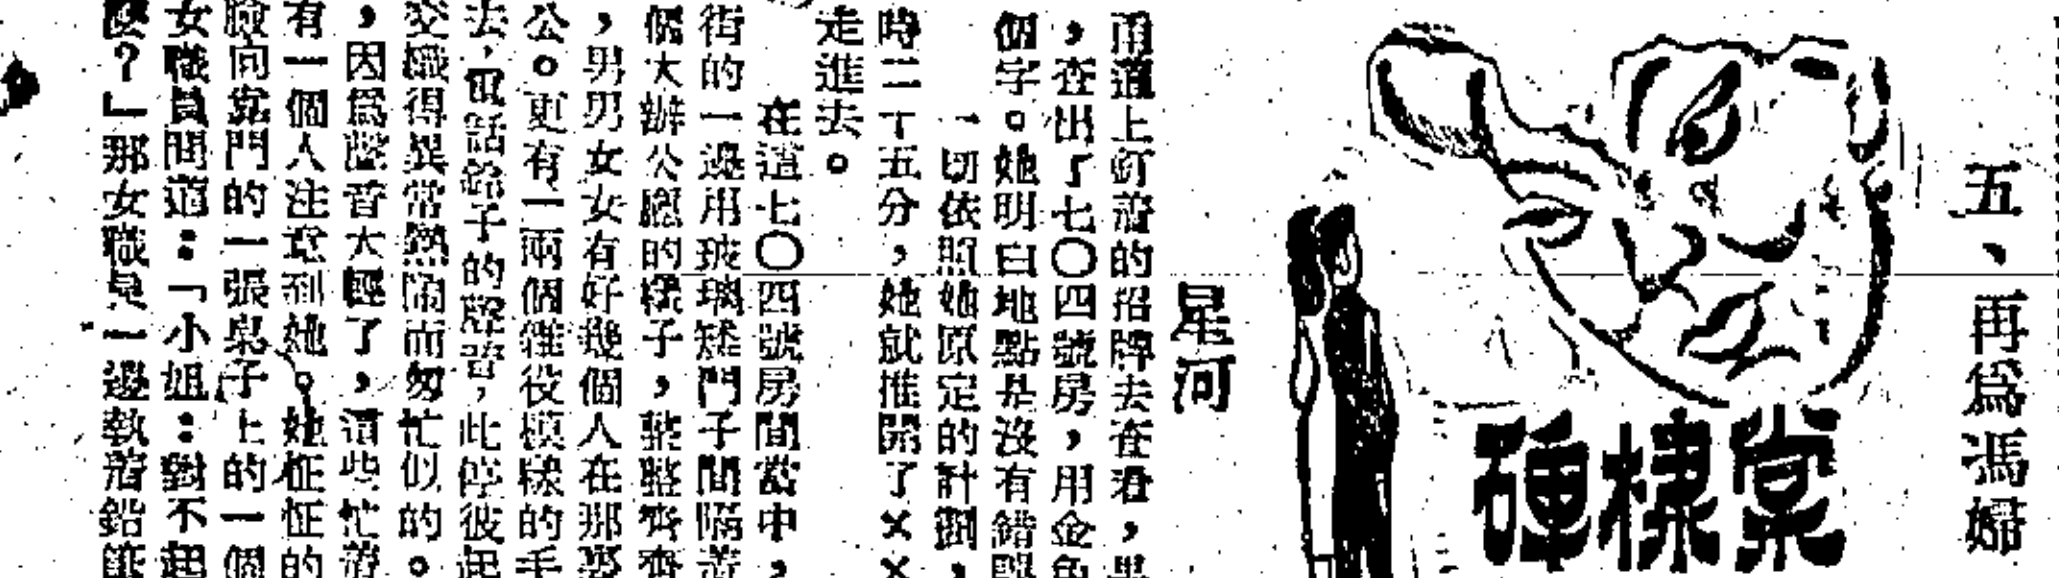 五、再爲馮婦
棠棣
星河
甬道上釘着的招牌去查看，果
，查出了七〇四號房，用金色
個字。她明白地點是沒有錯誤
一切依照她原定的計劃，
時二十五分，她就推開了××
走進去。
在這七〇四號房間當中，
街的一邊用玻璃矮門子間隔着
個大辦公廳的樣子，整整齊齊
，男男女女有好幾個人在那裏
公。更有一兩個雜役模樣的毛
去，電話鈴子的聲音，此停彼起
交織得異常熱鬧而匆忙似的。
，因爲聲音太輕了，這些忙着
有一個人注意到她。她怔怔的
臉向靠門的一張桌子上的一個
女職員問道：「小姐：對不起
麼？」那女職員一邊執着鉛筆